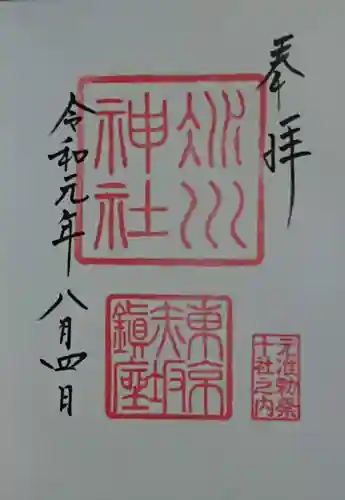 奉拝
氷川
神社
令和元年八月四日
東京
赤坂
鎮座
元准勅祭
十社之内